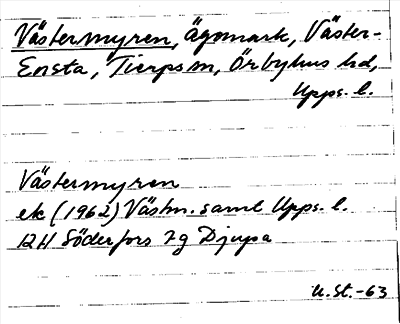 Västermyren, Ägomark, Väster-
Ensta, Tierps sn, Örbyhus hd,
Upps. l.
Västermyren
ek (1962) Västm. samt Upps. l.
12H Söderfors 7g Djupa
U.St.-63